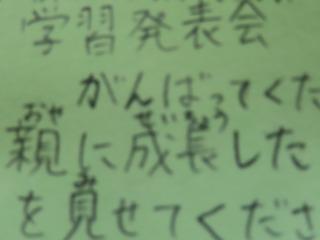 学習発表会
がんばってくだ
親に成長した
を見せてくださ